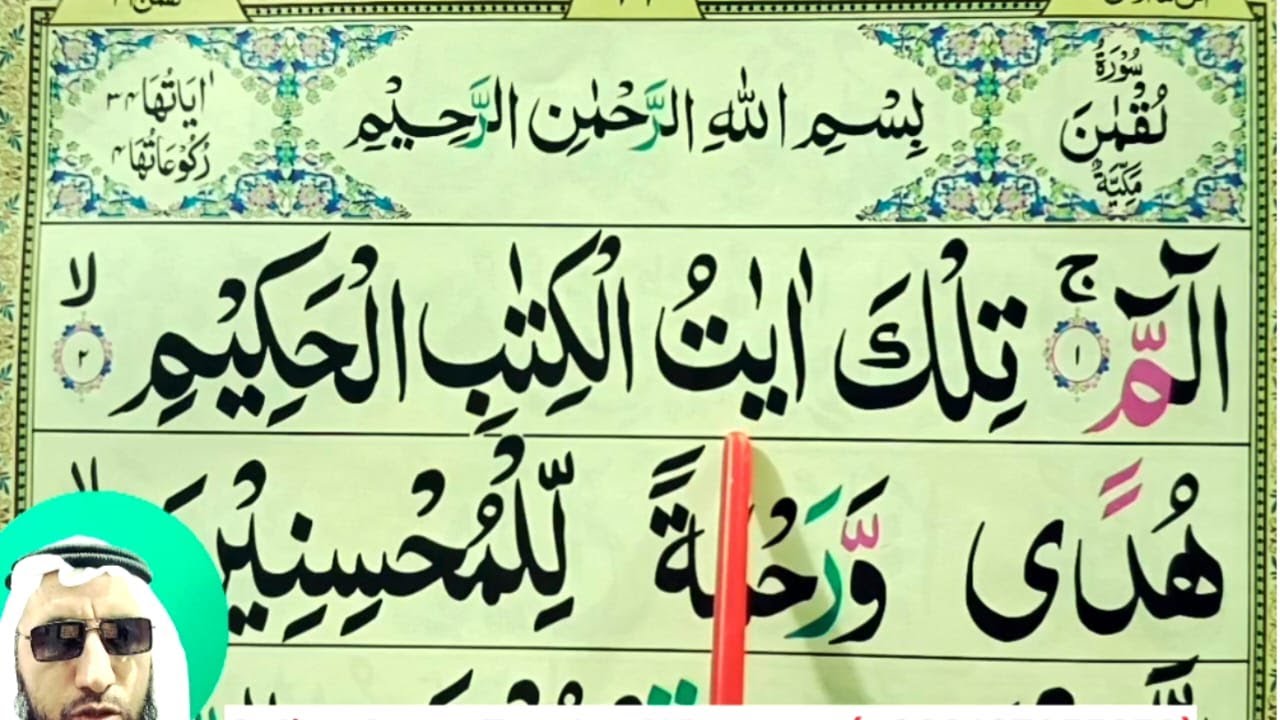 سُوْرَةُ لُقْمٰنَ مَكِّيَّةٌ
بِسْمِ اللّٰهِ الرَّحْمٰنِ الرَّحِيْمِ
اٰيَاتُهَا ٣٤
رُكُوْعَاتُهَا ٤
الٓمّٓ ۚ ١ تِلْكَ اٰيٰتُ الْكِتٰبِ الْحَكِيْمِ ۙ ٢
هُدًى وَّرَحْمَةً لِّلْمُحْسِنِيْنَ ۙ